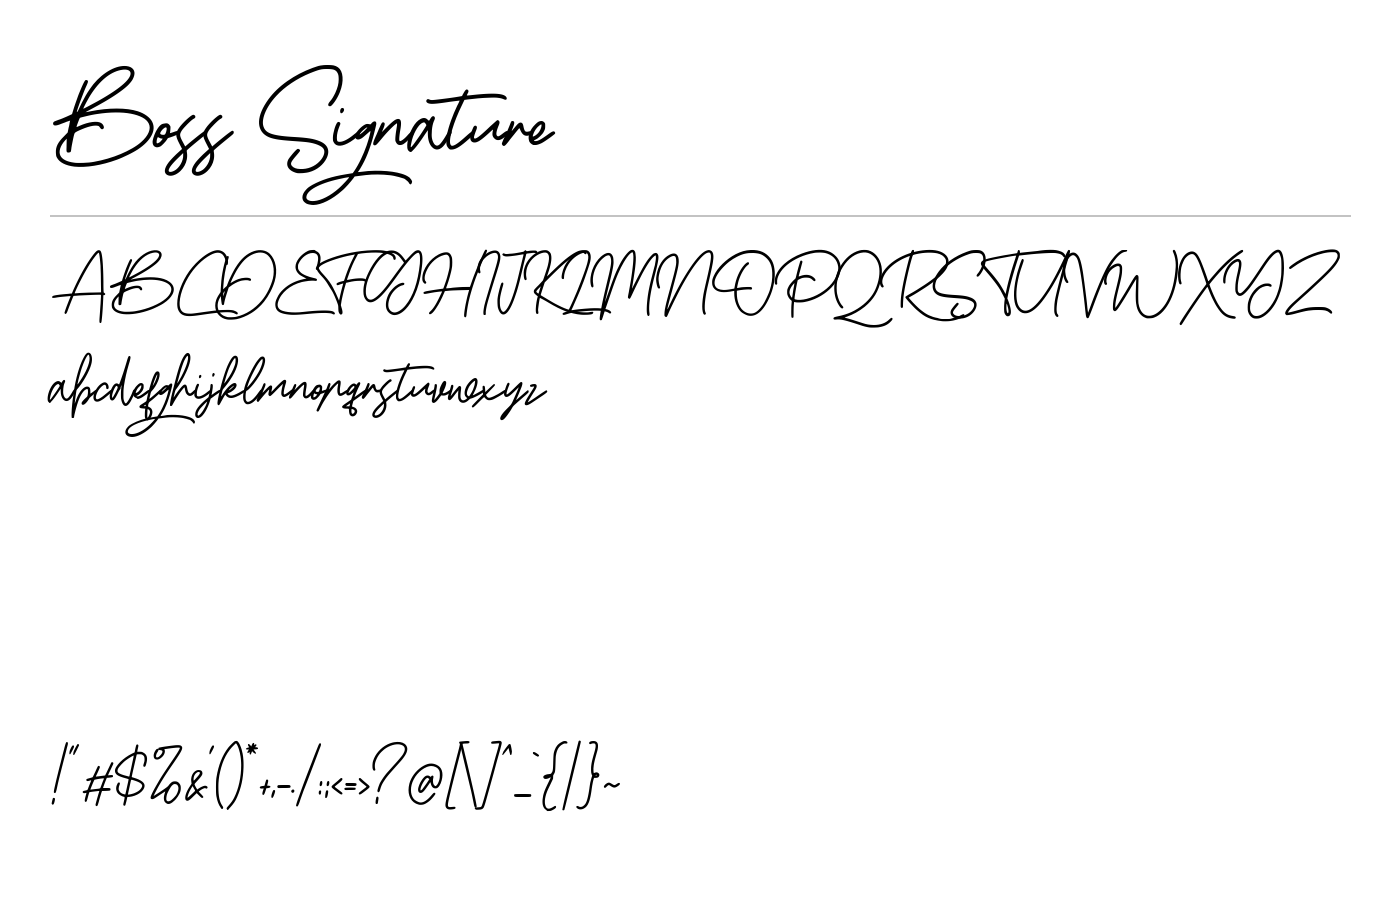 Boss Signature
ABCDEFGHIJKLMNOPQRSTUVWXYZ
abcdefghijklmnopqrstuvwxyz
!"#$%&'()*+,-./:;<=>?@[\]^_`{|}~